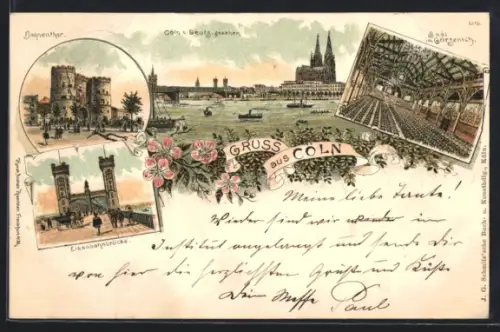 Hahnenthor.
Cöln v. Deutz gesehen
Saal
i. Gürzenich.
Eisenbahnbrücke.
GRUSS
aus CÖLN
Meine liebe Tante!
Wieder sind wir wieder im
Institut angelangt und sende Dir
von hier die herzlichsten Grüße und Küße
Dein Neffe Paul
J. G. Schmitz'sche Buch- u. Kunsthdlg., Köln.